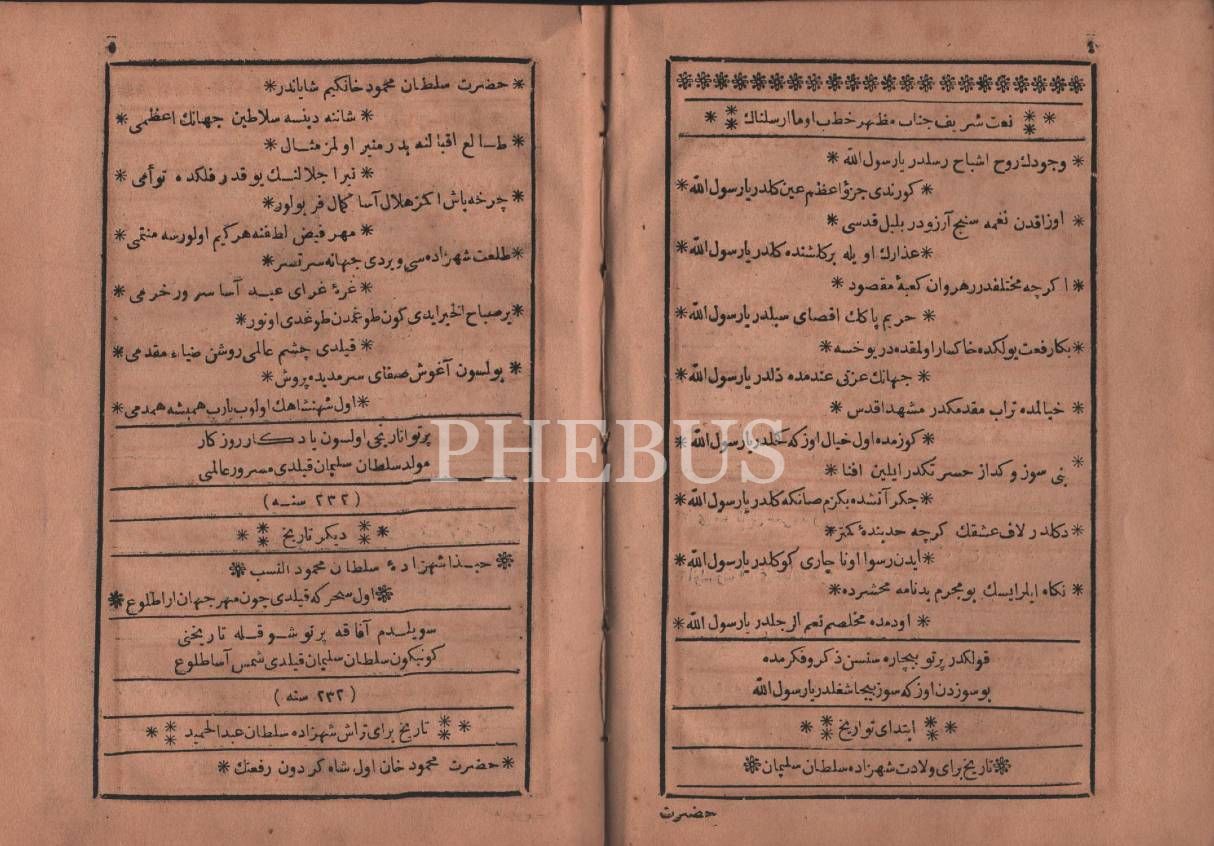 نعت شريف جناب مظهر خطاب اوما ارسلناك
وجودك روح اشباح رسلدر يارسول الله
كورندى جزؤ اعظم عين كلدر يارسول الله
اوزاقدن نغمه سنج آرزودر بلبل قدسى
عذارك اويله بر كلشنده كلدر يارسول الله
اكرچه مختلفدر رهروان كعبۀ مقصود
حريم پاكك اقصاى سبلدر يارسول الله
بكا رفعت يولكده خاكسار اولمقده در يوخسه
جهانك عزتى عندمده ذلدر يارسول الله
خيالمده تراب مقدمكدر مشهد اقدس
كوزمده اول خيال اوزكه كحلدر يارسول الله
بنى سوز وكداز حسرتكدر ايلين افنا
جكر آتشده بكزم صانكه كلدر يارسول الله
دكلدر لاف عشقك كرچه حد بندۀ كمتر
ايدن رسوا اونا چارى كوكلدر يارسول الله
نكاه ايلرايسك بو مجرم بدنامه محشرده
اودمده مخلصم نعم الرجلدر يارسول الله
قولكدر پرتو بيچاره سنسن ذكر وفكرمده
بو سوزدن اوزكه سوز بيجا شغلدر يارسول الله
ابتداى تواريخ
تاريخ براى ولادت شهزاده سلطان سليمان
حضرت
حضرت سلطان محمود خانكيم شاياندر
شاننه دينسه سلاطين جهانك اعظمى
طالع اقبالنه بدر منير اولمز مثال
نيرا جلالنك يوقدر فلكده توأمى
چرخه باش اكمز هلال آسا كمال فر بولور
مهر فيض لطفنه هركيم اولورسه منتمى
طلعت شهزاده سى ويردى جهانه سرتسر
غرۀ غراى عيد آسا سرور خرمى
بر صباح الخير ايدى كون طوغمدن طوغدى اونور
قيلدى چشم عالمى روشن ضياء مقدمى
بولسون آغوش صفاى سرمديده پروش
اول شهنشاهك اولوب يارب هميشه همدمى
پرتوا تاريخى اولسون يادكار روزكار
مولد سلطان سليمان قيلدى مسرور عالمى
(٢٣٢ سنه)
ديكر تاريخ
حبذا شهزادۀ سلطان محمود النسب
اول سحركه قيلدى چون مهر جهان ارا طلوع
سويلدم آفاقه پرتو شوقله تاريخنى
كونكبكون سلطان سليمان قيلدى شمس آسا طلوع
(٢٣٢ سنه)
تاريخ براى تراش شهزاده سلطان عبد الحميد
حضرت محمود خان اول شاه كردون رفعتك
PHEBUS